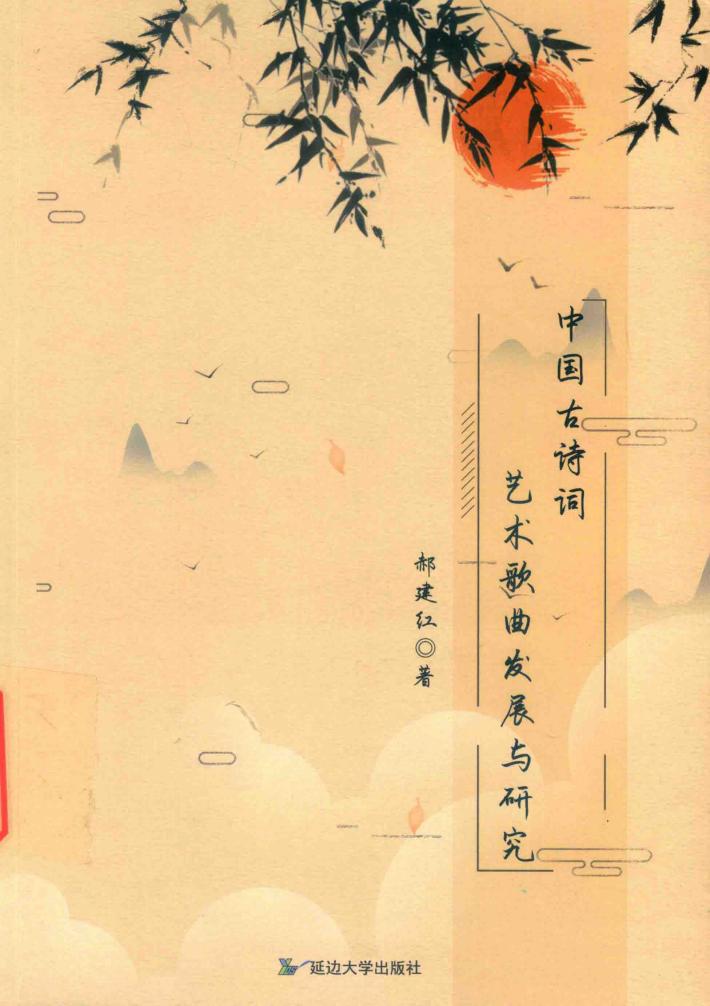 中国古诗词
艺术歌曲发展与研究
郝建红◎著
延边大学出版社